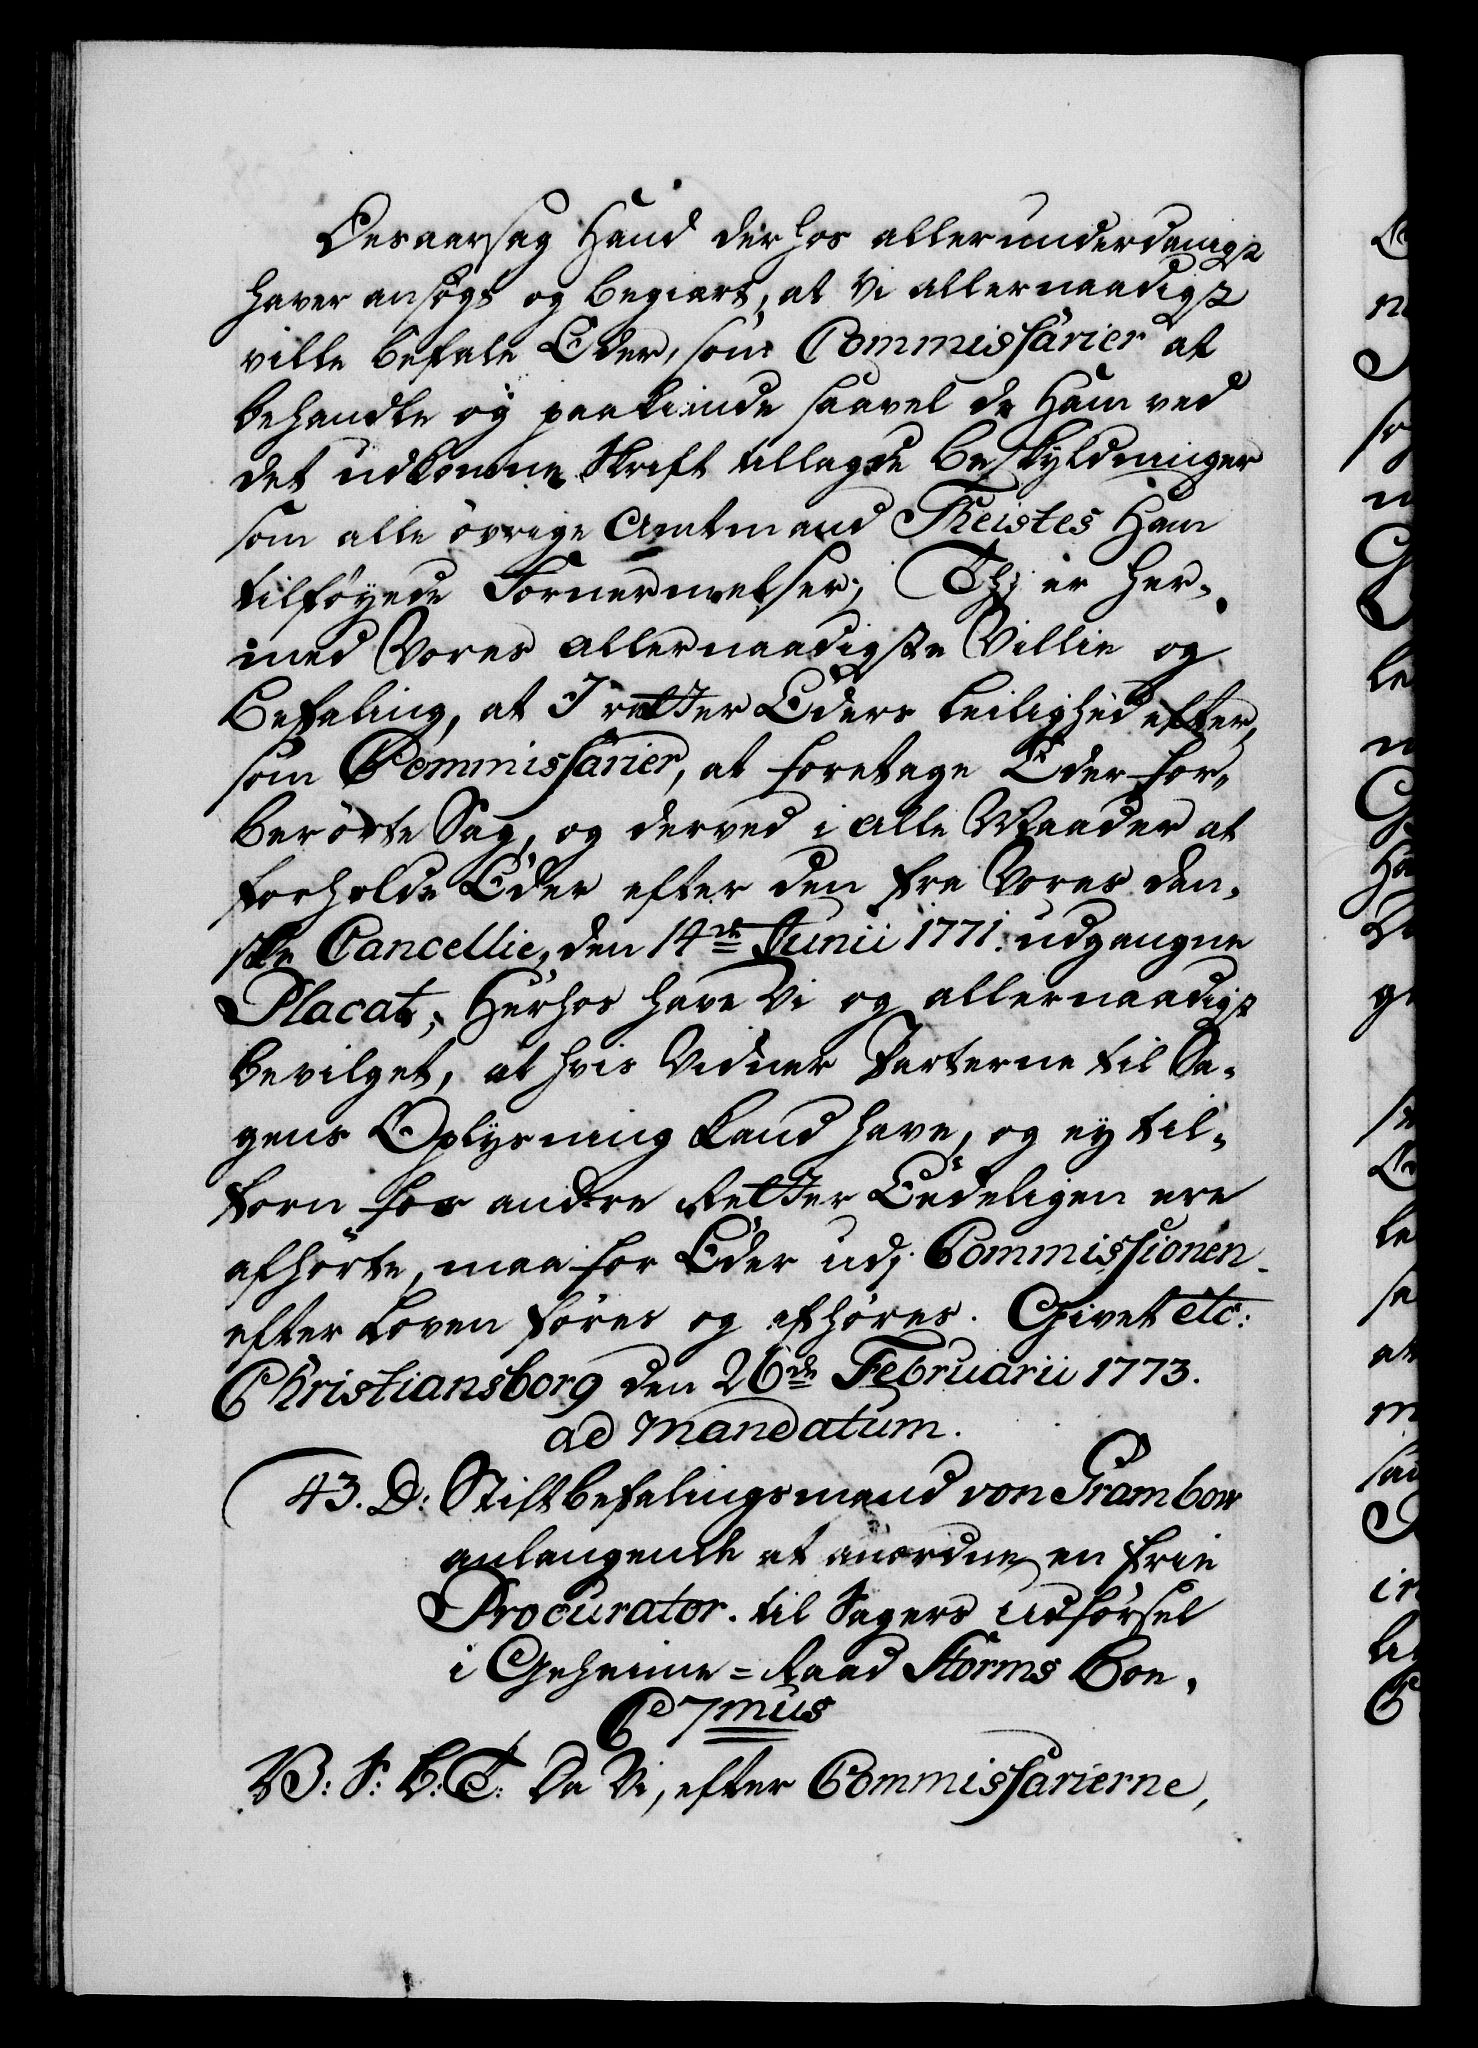 Desaarsag Hand der hos allerunderdanigst
haver ansøgt og begiert, at Vi allernaadigst
ville befale Eder, som Commissarier at
behandle og paakiende saavel de Ham ved
det udkomne Skrift tillagde Beskyldninger
som alle øvrige Amtmand Theistes Ham
tilføyede Fornermelser; Thi er her-
med Vores allernaadigste Villie og
Befaling, at I retter Eders leilighed efter,
som Commissarier, at foretage Eder for-
berørte Sag, og derved i alle Maader at
forholde Eder efter den fra Vores dan-
ske Cancellie, den 14de Junii 1771. udgangne
Placat; Herhos have Vi og allernaadigst
bevilget, at hvis Vidner Parterne til Sa-
gens Oplysning kand have, og ey til-
forn for andre Retter Eedeligen ere
afhørte, maa for Eder udj Commissionen
efter Loven føres og afhøres. Givet etc:
Christiansborg den 26de Februarii 1773.
ad Mandatum.
43. D: Stiftbefalingsmand von Grambow
anlangende at anordne en frie
Procurator. til Sagers Udførsel
i Geheime=Raad Storms Boe.
C 7mus
V: S: G: T: Da Vi, efter Commissarierne,